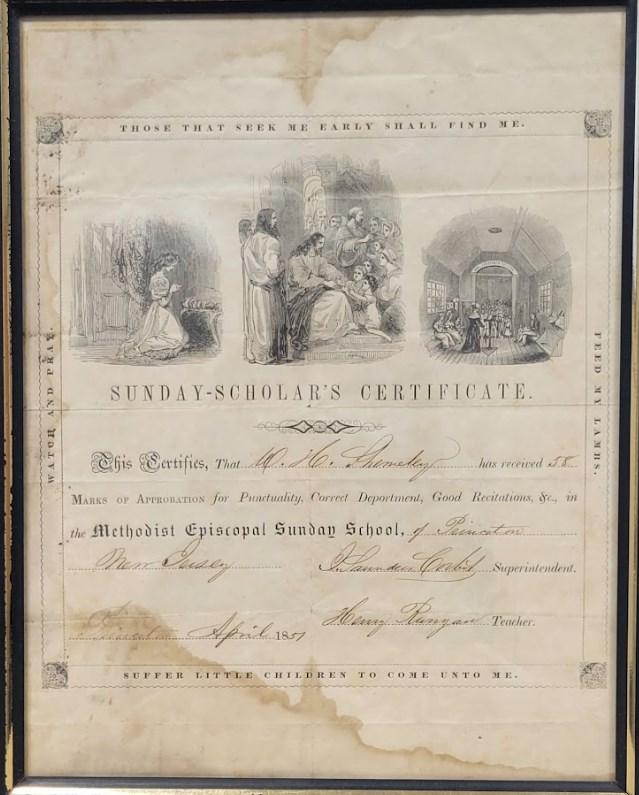 THOSE THAT SEEK ME EARLY SHALL FIND ME.
WATCH AND PRAY.
FEED MY LAMBS.
SUNDAY-SCHOLAR'S CERTIFICATE.
This Certifies, That W. H. has received 58
MARKS OF APPROBATION for Punctuality, Correct Deportment, Good Recitations, &c., in
the Methodist Episcopal Sunday School, of Princeton
New Jersey Superintendent.
Henry Runyan Teacher.
April 1851
SUFFER LITTLE CHILDREN TO COME UNTO ME.